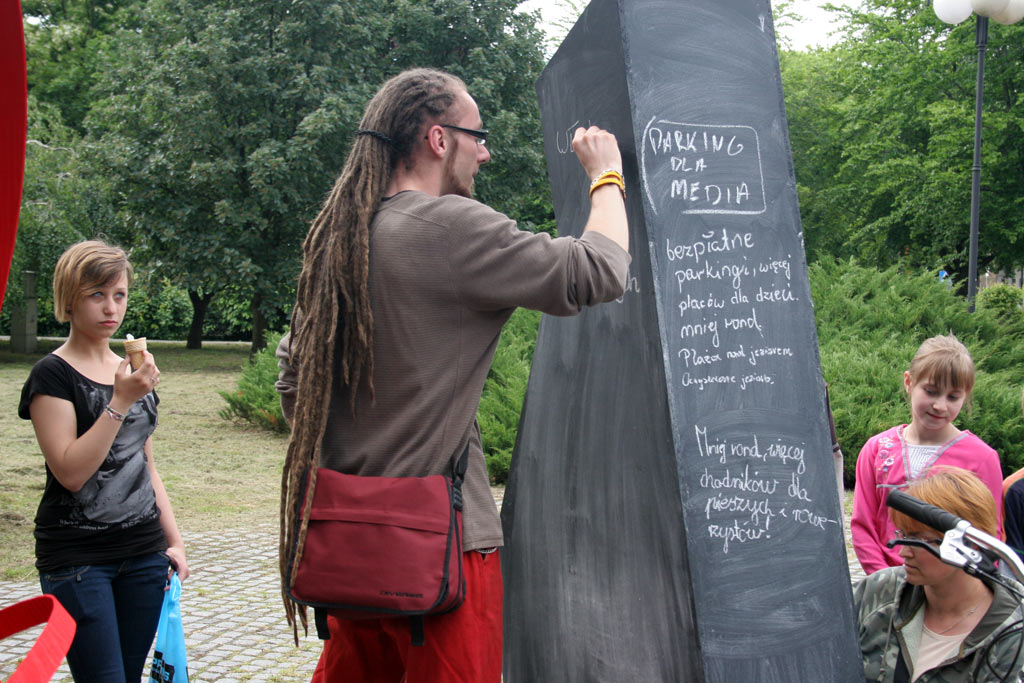 PARKING
DLA
MEDIA
bezpłatne
parkingi, więcej
placów dla dzieci.
mniej rond.
Plaża nad jeziorem
jeziora.
Mniej rond, więcej
chodników dla
pieszych i rowe-
rzystów!